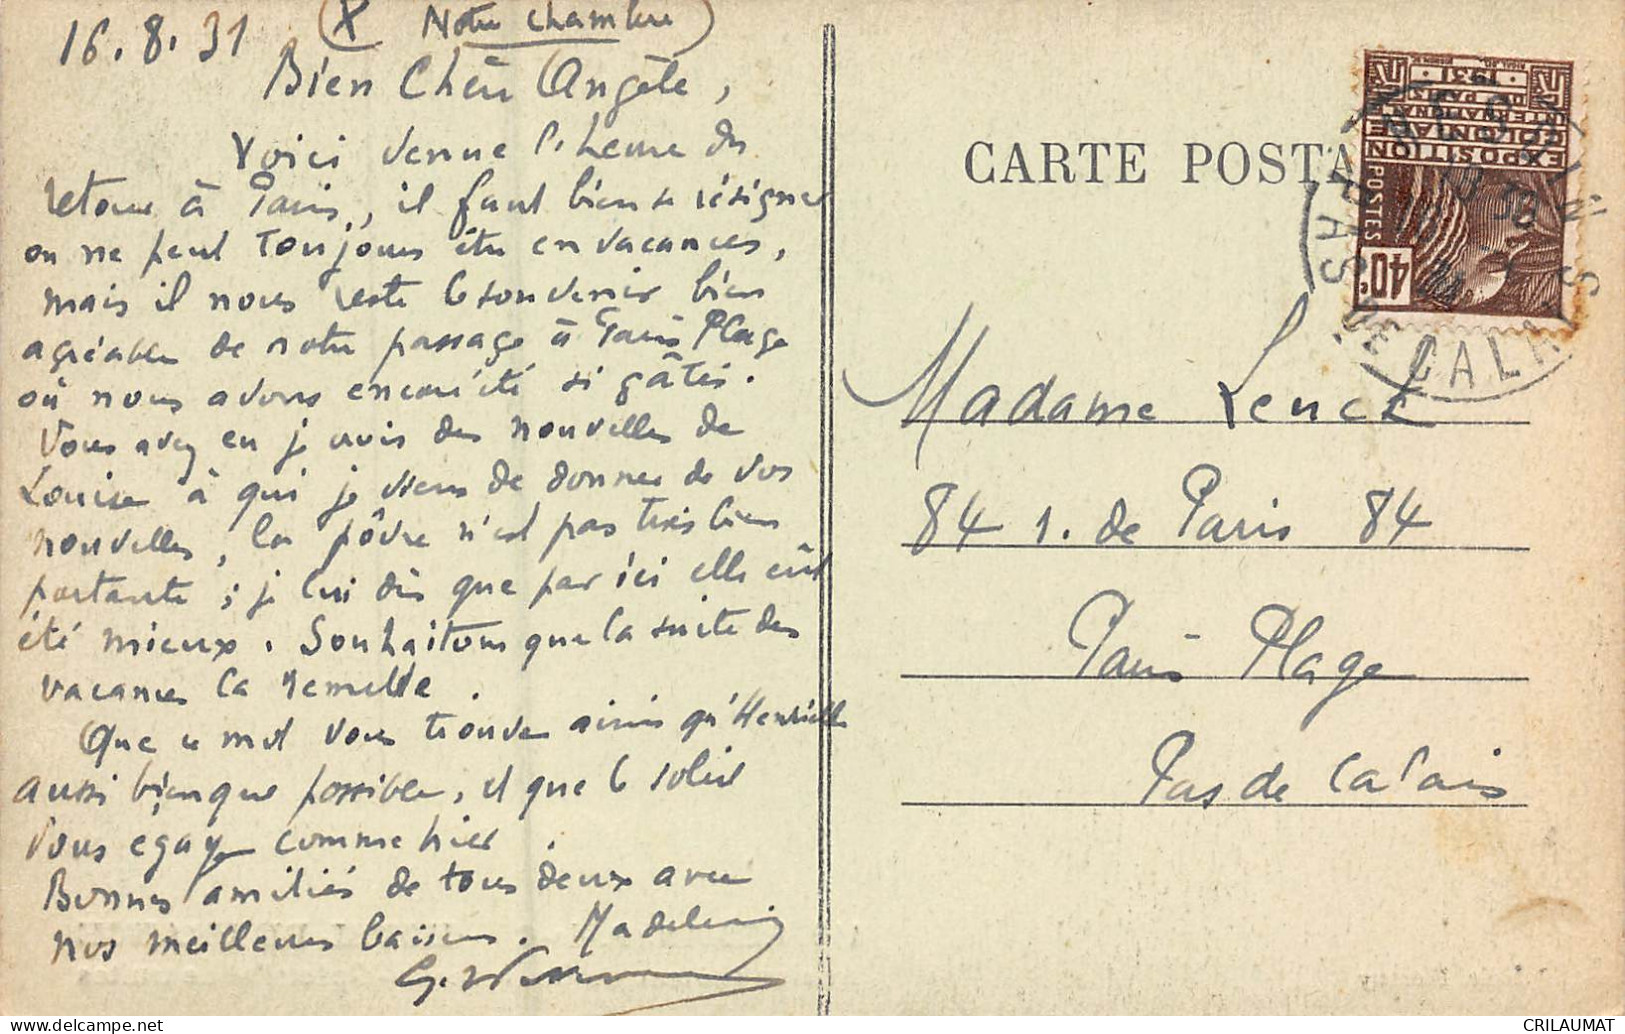 16.8.31 (X Notre chambre)
Bien Chère Angèle,
Voici venue l'heure du
retour à Paris, il faut bien se résigner
on ne peut toujours être en vacances,
mais il nous reste le souvenir bien
agréable de notre passage à Paris Plage
où nous avons encore été si gâtés.
Vous avez eu je crois des nouvelles de
Louise à qui je viens de donner de vos
nouvelles, la pôvre n'est pas très bien
portante ; je lui dis que par ici elle eût
été mieux. Souhaitons que la suite des
vacances la remette.
Que ce mot vous trouve ainsi qu'Henriette
aussi bien que possible, et que le soleil
vous égaye comme hier.
Bonnes amitiés de tous deux avec
nos meilleurs baisers. Madeleine
G.
CARTE POSTA
EXPOSITION
COLONIALE
INTERNATIONALE
DE PARIS
· 1931 ·
POSTES
40c.
PAS DE CALAIS
Madame Lenck
84 r. de Paris 84
Paris Plage
Pas de Calais
CRILAUMAT